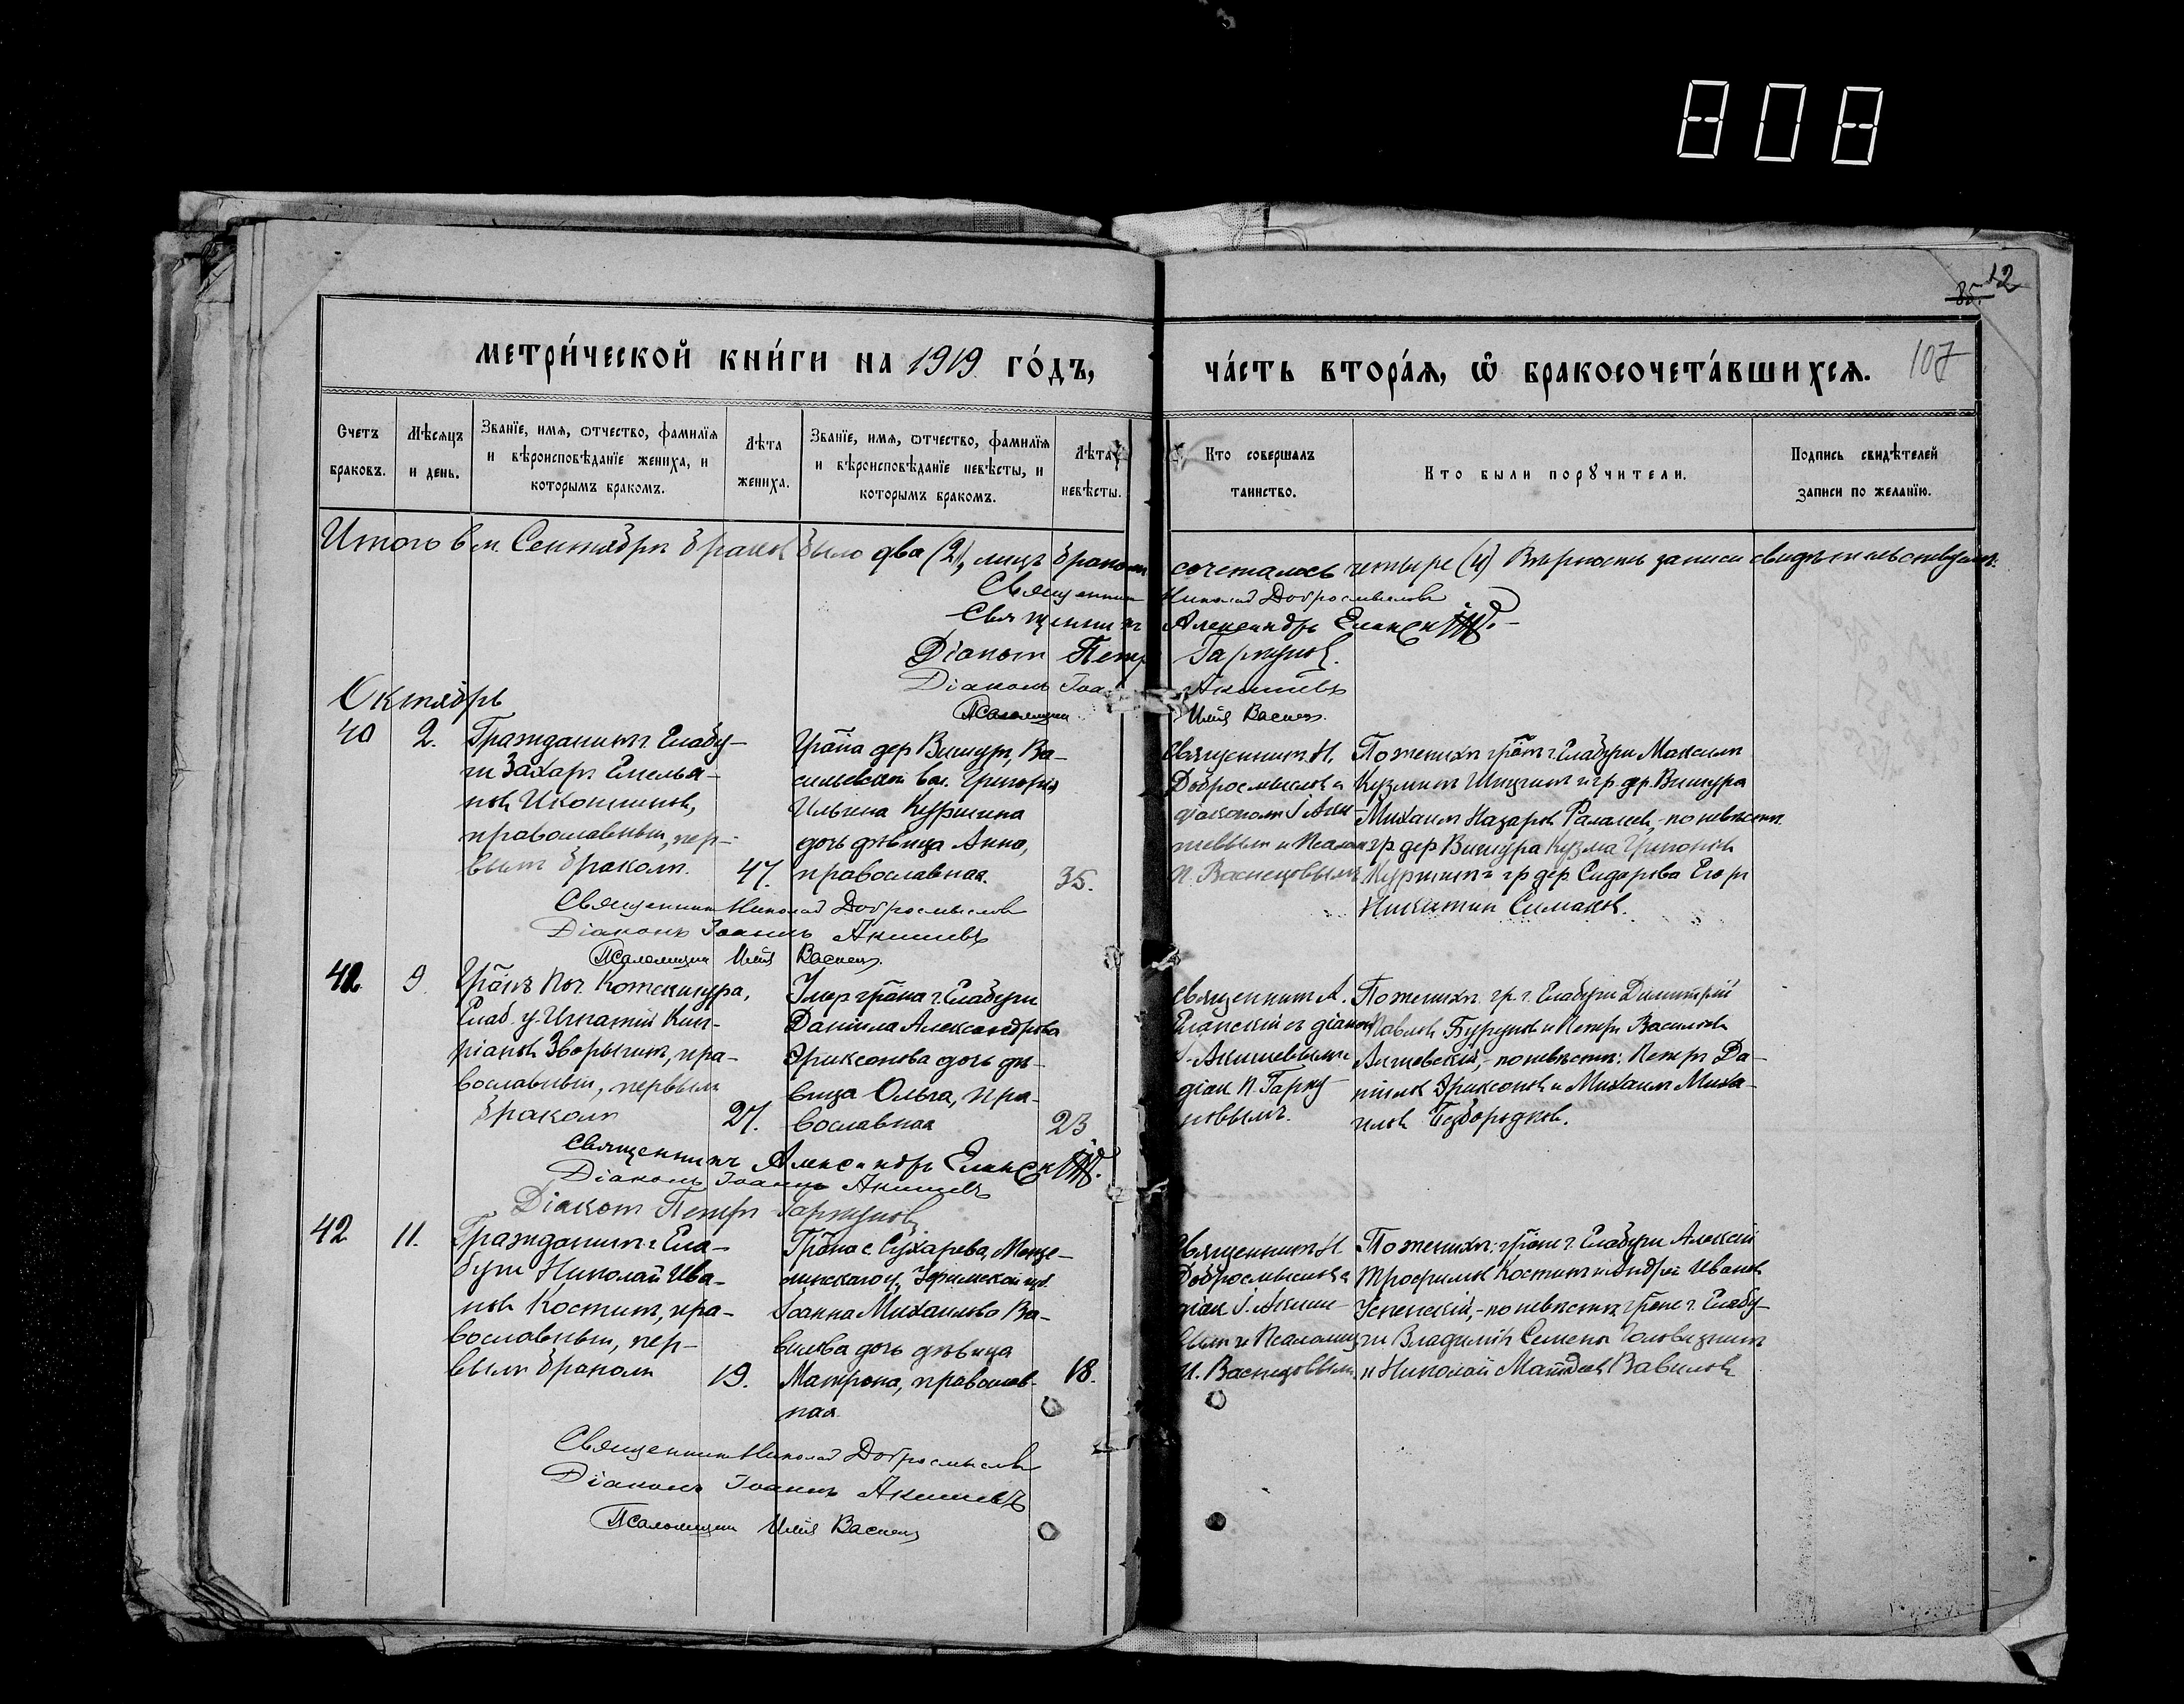 808
12
85.
107
МЕТРИ́ЧЕСКОЙ КНИ́ГИ НА 1919 ГО́ДЪ,
ЧА́СТЬ ВТОРА́Я, Ѡ҆ БРАКОСОЧЕТА́ВШИХСЯ.
Счетъ браковъ.
Мѣсяцъ и день.
Званїе, имя, ѻтчество, фамилїя
и вѣроисповѣданїе жениха, и
которымъ бракомъ.
Лѣта
жениха.
Званїе, имя, ѻтчество, фамилїя
и вѣроисповѣданїе невѣсты, и
которымъ бракомъ.
Лѣта
невѣсты.
Кто совершалъ
таинство.
Кто были порꙋчители.
Подпись свидѣтелей
записи по желанїю.
Итого в м. Сентябрѣ браковъ было два (2), лицъ бракомъ сочеталось четыре (4) Вѣрность записи свидѣтельствуемъ:
Священникъ Николай Добросмысловъ
Священникъ Александръ Еланскій.
Діаконъ Петръ Гаркуновъ.
Діаконъ Іоаннъ Акишевъ
Псаломщикъ Илія Васнец.
Октябрь
40
2.
Гражданинъ г. Елабу-
ги Захаръ Емелья-
новъ Иконниковъ,
православный, пер-
вымъ бракомъ.
47.
Гр-на дер Вишур, Ва-
сильевской вол. Григорія
Ильина Куршина
дочь дѣвица Анна,
православная.
35.
Священникъ Н.
Добросмысловъ с
діакономъ І. Аки-
шевымъ и Псалом
И. Васнецовымъ
По женихѣ гр-нъ г. Елабуги Максимъ
Кузминъ Шишкинъ и гр. др. Вишура
Михаилъ Назаровъ Галашев, - по невѣстѣ
гр дер Вишура Кузма Григорьев
Куршинъ и гр дер Сидорова Егоръ
Никитин Симаков.
Священникъ Николай Добросмысловъ
Діаконъ Іоаннъ Акишевъ
Псаломщикъ Илія Васнец.
41
9.
Гр-нъ поч. Котекшура,
Елаб. у. Игнатій Кип-
ріановъ Зворыгинъ, пра-
вославный, первымъ
бракомъ
27.
Умер гр-на г. Елабуги
Даніила Александрова
Эриксонова дочь дѣ-
вица Ольга, пра-
вославная
23
Священникъ А.
Еланскій съ діакон
І. Акишевымъ
діак П. Гарку-
новымъ.
По женихѣ гр. г. Елабуги Димитрій
Павловъ Бурундов и Петръ Васильевъ
Ашевскій, - по невѣстѣ: Петръ Да-
ніиловъ Эриксоновъ и Михаилъ Михаи-
ловъ Безбородковъ.
Священникъ Александръ Еланскій.
Діаконъ Іоаннъ Акишевъ
Діаконъ Петръ Гаркуновъ
42
11.
Гражданинъ г. Ела-
буги Николай Ива-
новъ Костинъ, пра-
вославный, пер-
вымъ бракомъ
19.
Гр-на с. Сухарева, Мензе-
линскаго у, Уфимской губ.
Іоанна Михаилова Ва-
вилова дочь дѣвица
Матрона, православ-
ная.
18.
Священникъ Н.
Добросмысловъ с
діак. І. Акише-
вым и Псаломщ
И. Васнецовым
По женихѣ: гр-не г. Елабуги Алексій
Трофимов Костинъ и Андрей Ивановъ
Успенскій, - по невѣстѣ, гр-не г. Елабу-
ги Владиміръ Семенов Головизнинъ
и Николай Матвѣевъ Вавиловъ
Священникъ Николай Добросмысловъ
Діаконъ Іоаннъ Акишевъ
Псаломщикъ Илія Васнец